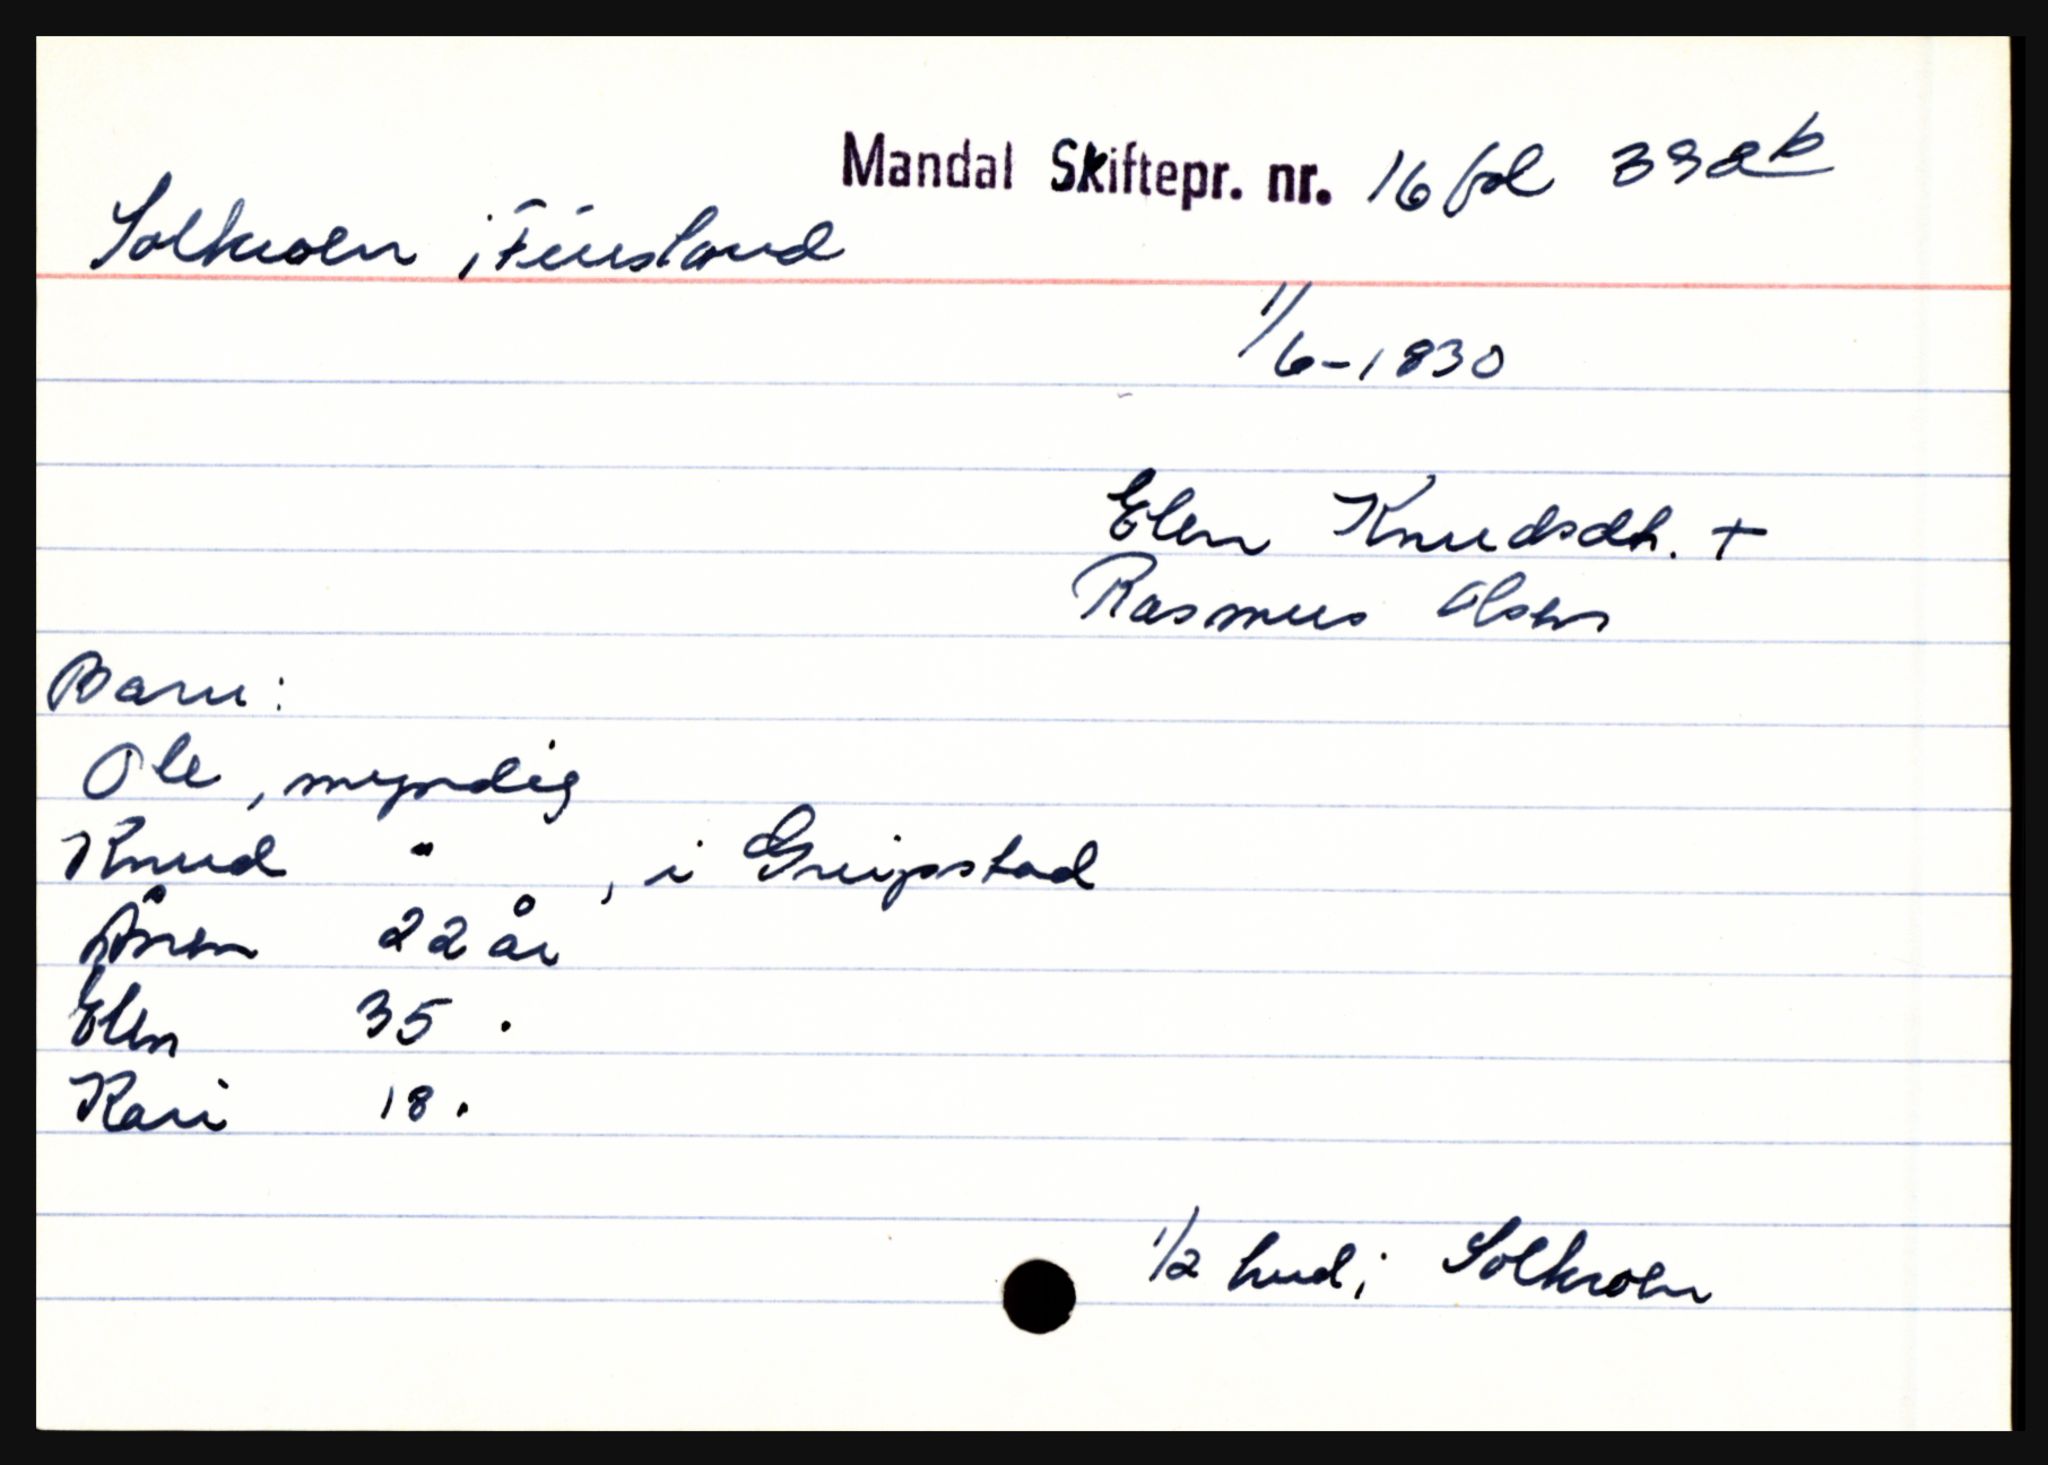 Mandal Skiftepr. nr. 16 fol 398b
Solkroen i Finsland
1/6-1830
Elen Knudsdh. +
Rasmus Olsen
Barn:
Ole, myndig
Knud " , i Greipstad
Ånen 22 år
Elen 35 "
Kari 18 "
1/2 hud i Solkroen